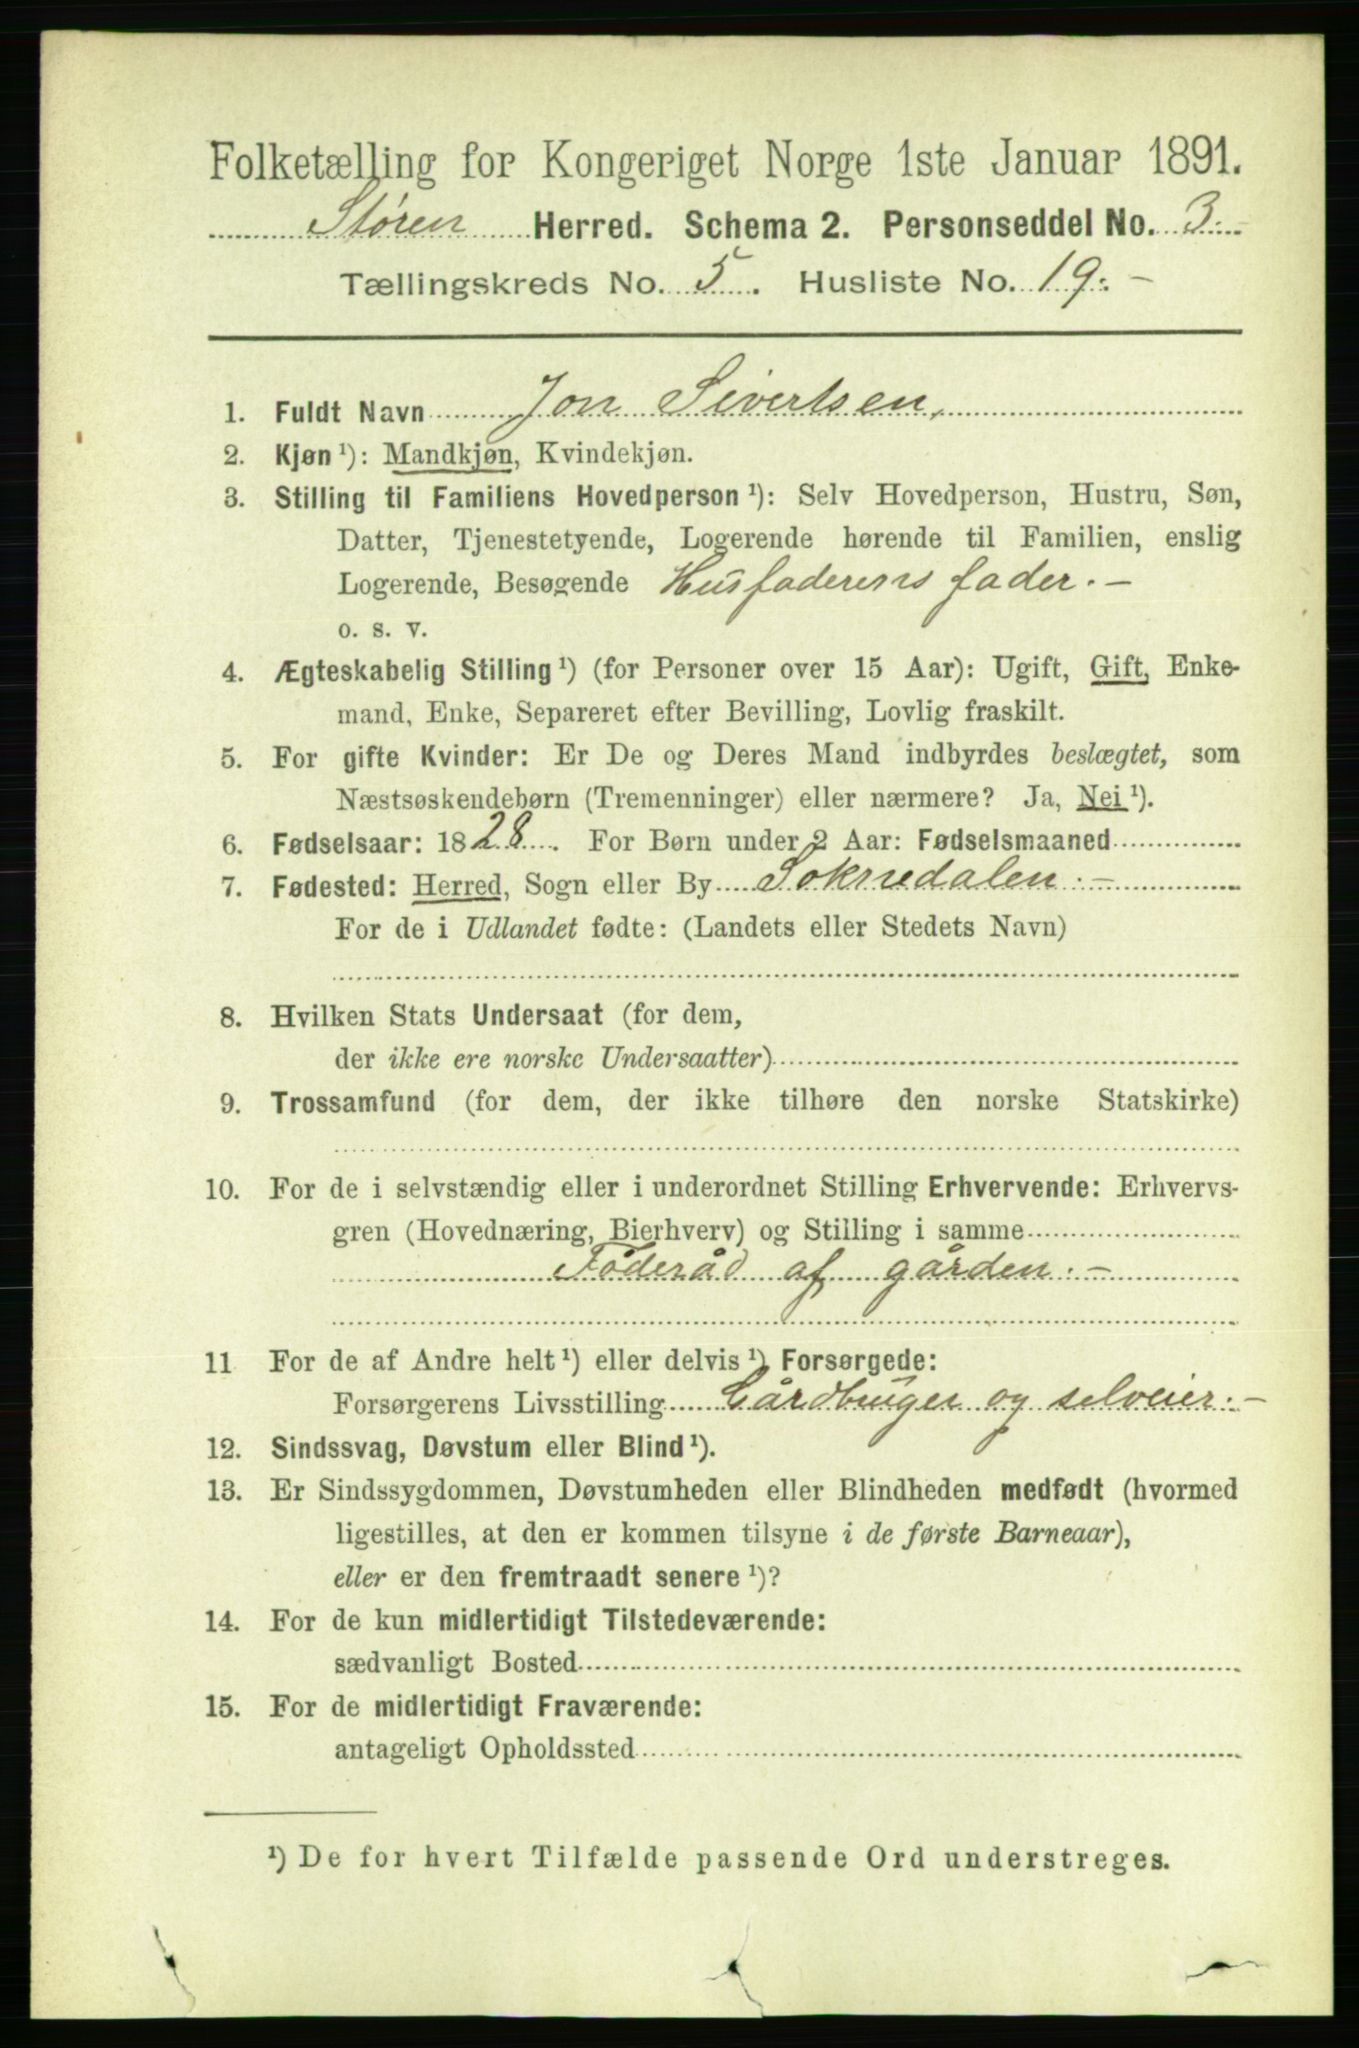 Folketælling for Kongeriget Norge 1ste Januar 1891.
Støren Herred. Schema 2. Personseddel No. 3.-
Tællingskreds No. 5. Husliste No. 19.-
1. Fuldt Navn Jon Sivertsen,
2. Kjøn¹): Mandkjøn, Kvindekjøn.
3. Stilling til Familiens Hovedperson¹): Selv Hovedperson, Hustru, Søn,
Datter, Tjenestetyende, Logerende hørende til Familien, enslig
Logerende, Besøgende Husfaderens fader.-
o. s. v.
4. Ægteskabelig Stilling¹) (for Personer over 15 Aar): Ugift, Gift, Enke-
mand, Enke, Separeret efter Bevilling, Lovlig fraskilt.
5. For gifte Kvinder: Er De og Deres Mand indbyrdes beslægtet, som
Næstsøskendebørn (Tremenninger) eller nærmere? Ja, Nei¹).
6. Fødselsaar: 1828. For Børn under 2 Aar: Fødselsmaaned
7. Fødested: Herred, Sogn eller By Soknedalen.-
For de i Udlandet fødte: (Landets eller Stedets Navn)
8. Hvilken Stats Undersaat (for dem,
der ikke ere norske Undersaatter)
9. Trossamfund (for dem, der ikke tilhøre den norske Statskirke)
10. For de i selvstændig eller i underordnet Stilling Erhvervende: Erhvervs-
gren (Hovednæring, Bierhverv) og Stilling i samme
Føderåd af gården.-
11 For de af Andre helt¹) eller delvis¹) Forsørgede:
Forsørgerens Livsstilling Gårdbruger og selveier.-
12. Sindssvag, Døvstum eller Blind¹).
13. Er Sindssygdommen, Døvstumheden eller Blindheden medfødt (hvormed
ligestilles, at den er kommen tilsyne i de første Barneaar),
eller er den fremtraadt senere¹)?
14. For de kun midlertidigt Tilstedeværende:
sædvanligt Bosted
15. For de midlertidigt Fraværende:
antageligt Opholdssted
¹) De for hvert Tilfælde passende Ord understreges.